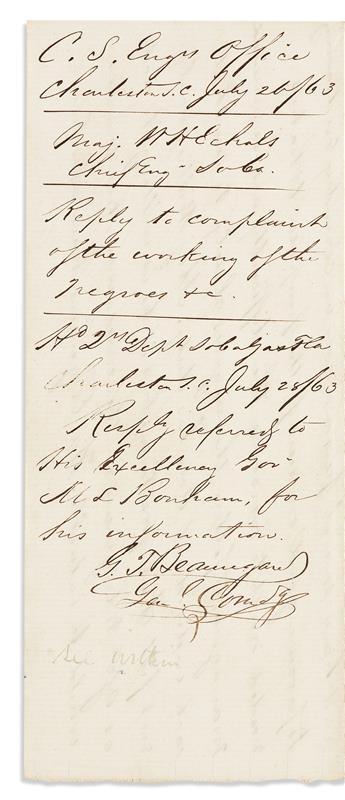 C. S. Engrs Office
Charleston S.C. July 26/63
Maj. W H Echols
Chief Eng. So Ca.
Reply to complaint
of the working of the
Negroes &c.
Hd Qrs Dept So Ca Ga & Fla
Charleston S.C. July 28/63
Respy referred to
His Excellency Gov
M L Bonham, for
his information.
G. T. Beauregard
Genl Comdg
see within